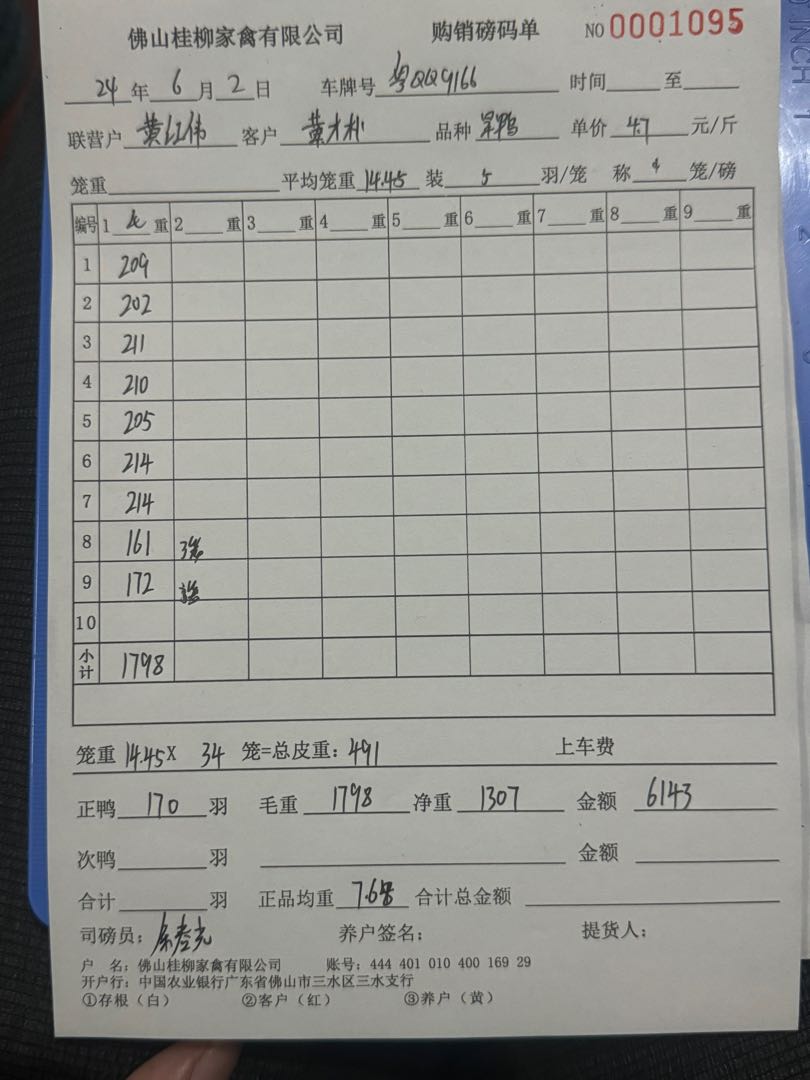 佛山桂柳家禽有限公司 购销磅码单 NO 0001095
24年6月2日 车牌号 粤QQ9166 时间 至
联营户 黄红伟 客户 黄才彬 品种 单价 4.7 元/斤
笼重 平均笼重 14.45 装 5 羽/笼 称 4 笼/磅
编号 1 重 2 重 3 重 4 重 5 重 6 重 7 重 8 重 9 重
1 209
2 202
3 211
4 210
5 205
6 214
7 214
8 161 3笼
9 172
10
小计 1798
笼重 14.45X 34 笼=总皮重: 491 上车费
正鸭 170 羽 毛重 1798 净重 1307 金额 6143
次鸭 羽 金额
合计 羽 正品均重 7.68 合计总金额
司磅员: 养户签名: 提货人:
户 名: 佛山桂柳家禽有限公司 账号: 444 401 010 400 169 29
开户行: 中国农业银行广东省佛山市三水区三水支行
①存根(白) ②客户(红) ③养户(黄)
INCH 1